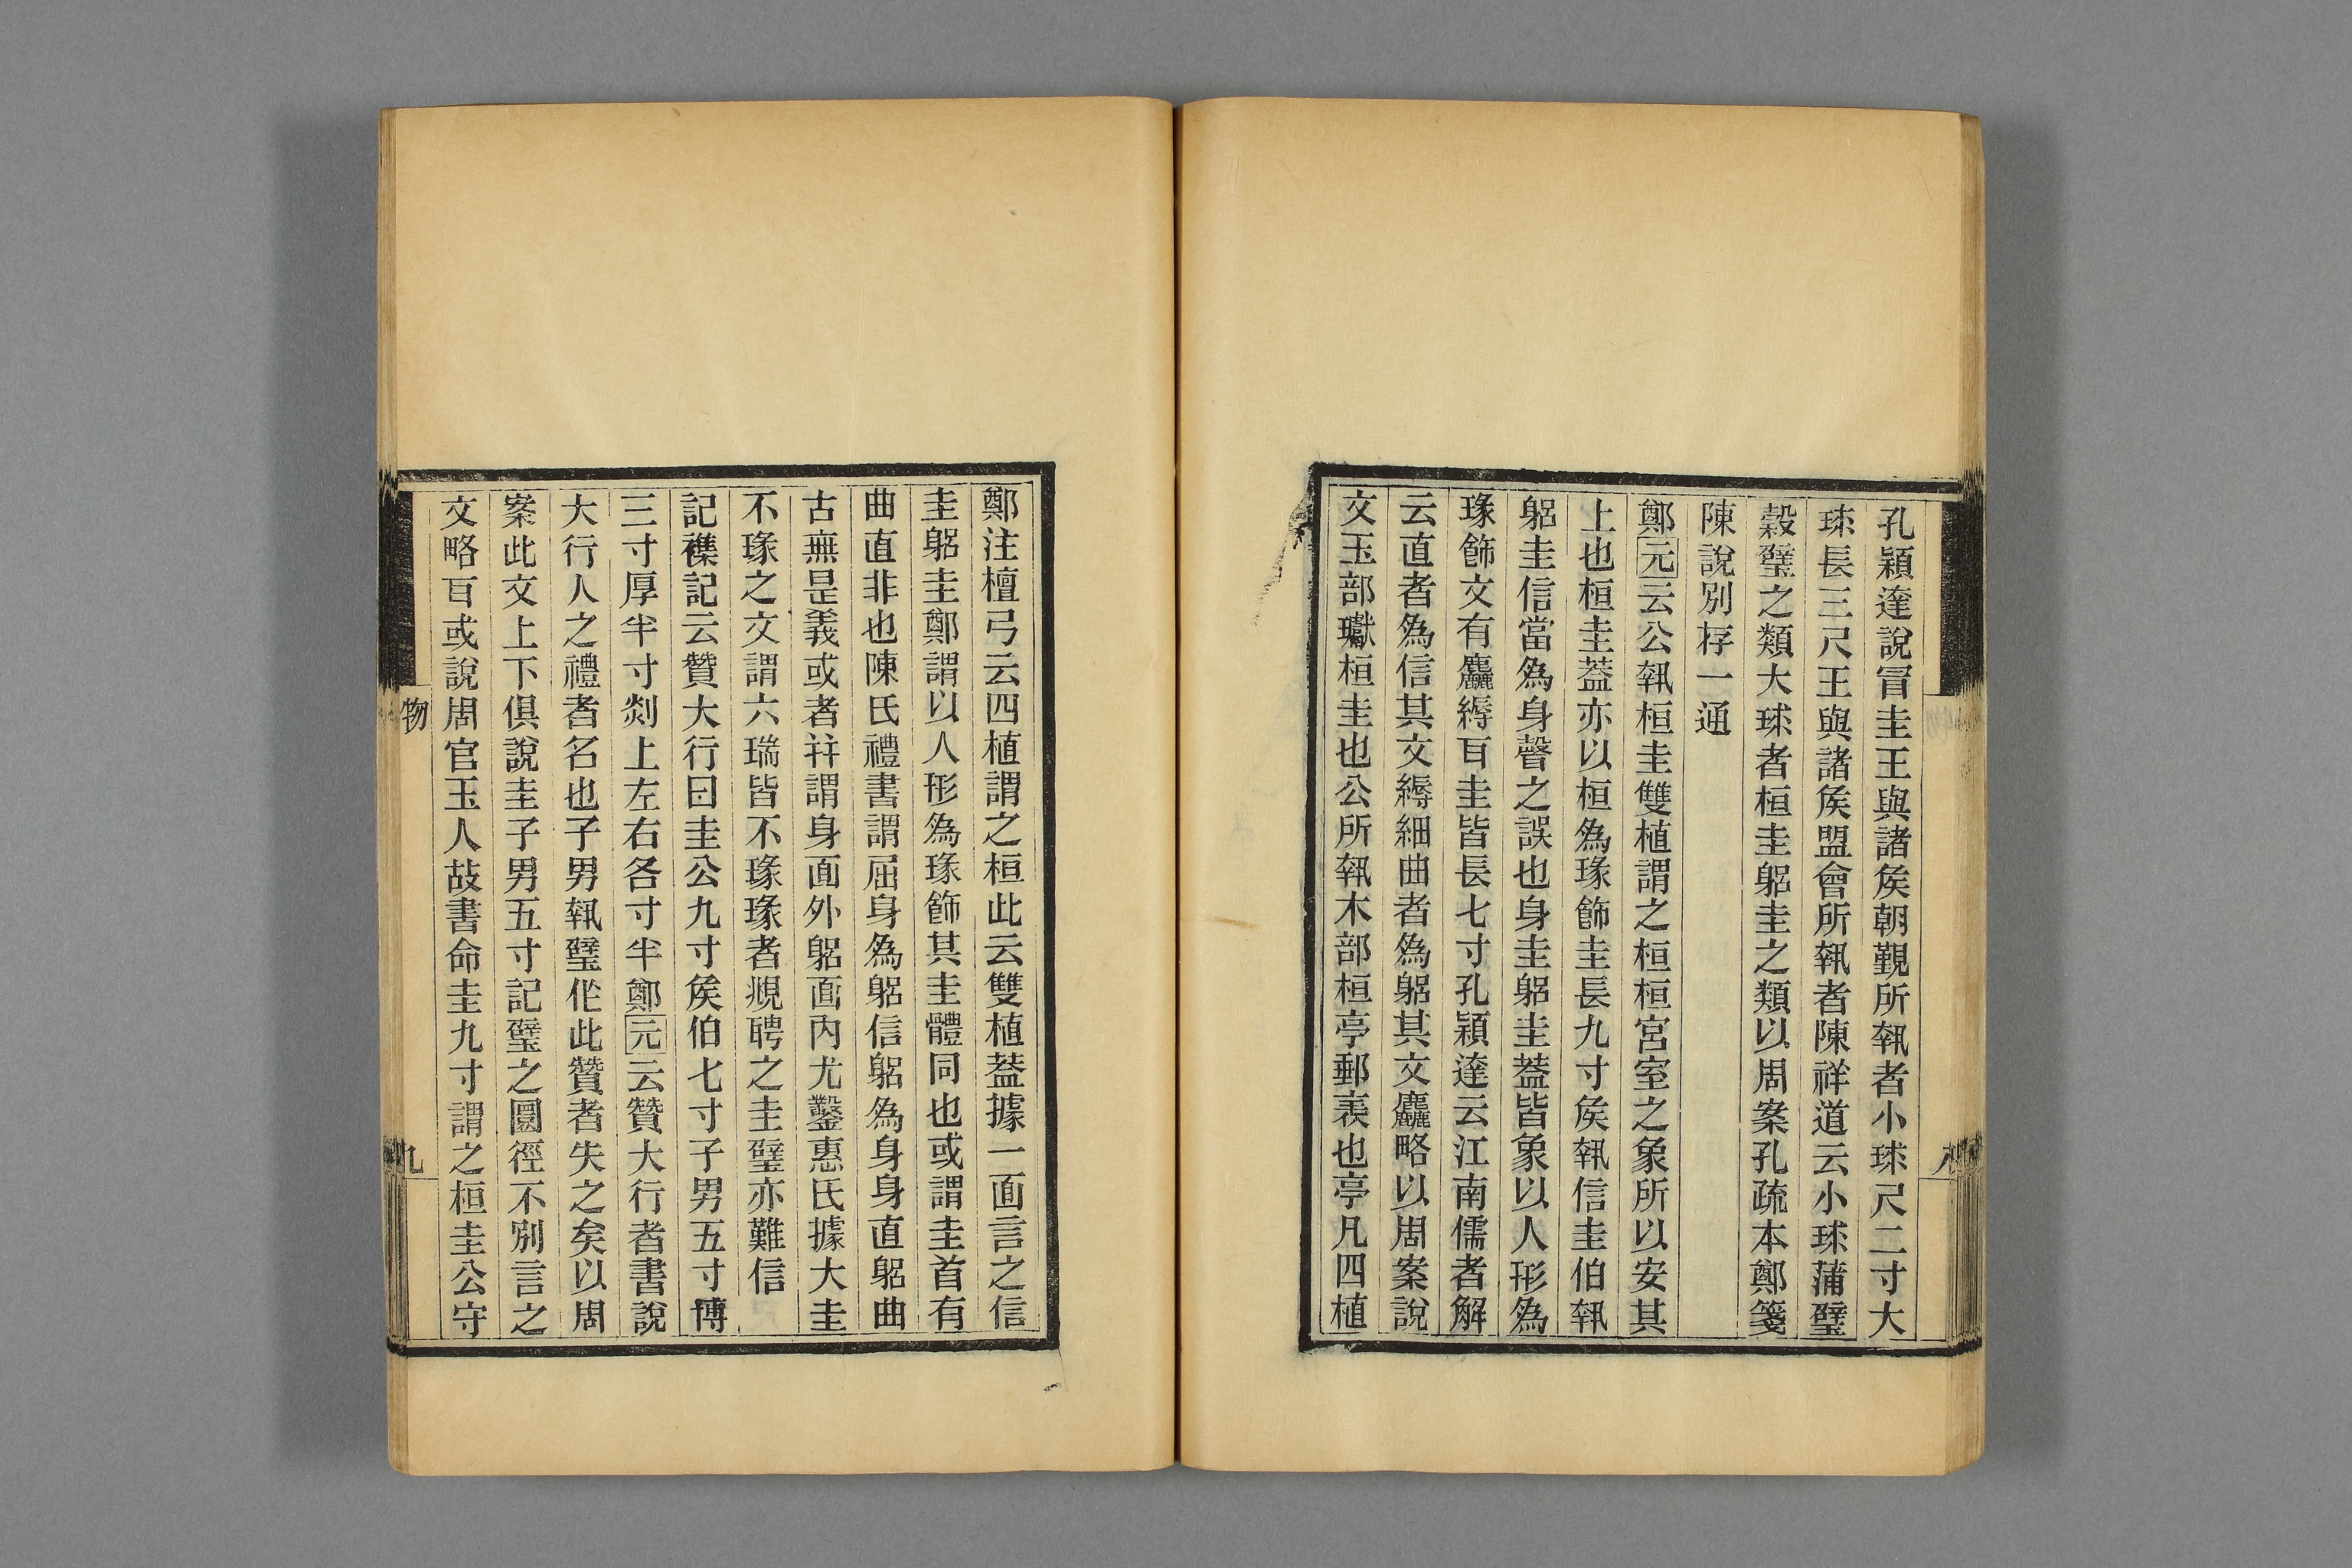 孔穎達說冒圭王與諸矦朝覲所執者小球尺二寸大
球長三尺王與諸矦盟會所執者陳祥道云小球蒲璧
穀璧之類大球者桓圭躳圭之類以周案孔疏本鄭箋
陳說別存一通
鄭元云公執桓圭雙植謂之桓桓宮室之象所以安其
上也桓圭葢亦以桓為瑑飾圭長九寸矦執信圭伯執
躳圭信當為身聲之誤也身圭躳圭葢皆象以人形為
瑑飾文有麤縟耳圭皆長七寸孔穎達云江南儒者解
云直者為信其文縟細曲者為躳其文麤略以周案說
文玉部瓛桓圭也公所執木部桓亭郵表也亭凡四植
鄭注檀弓云四植謂之桓此云雙植葢據一面言之信
圭躳圭鄭謂以人形為瑑飾其圭體同也或謂圭首有
曲直非也陳氏禮書謂屈身為躳信躳為身身直躳曲
古無是義或者祥謂身面外躳面內尤鑿惠氏據大圭
不瑑之文謂六瑞皆不瑑瑑者覜聘之圭璧亦難信
記襍記云贊大行曰圭公九寸矦伯七寸子男五寸博
三寸厚半寸剡上左右各寸半鄭元云贊大行者書說
大行人之禮者名也子男執璧作此贊者失之矣以周
案此文上下俱說圭子男五寸記璧之圜徑不別言之
文略耳或說周官玉人故書命圭九寸謂之桓圭公守
物
九
八